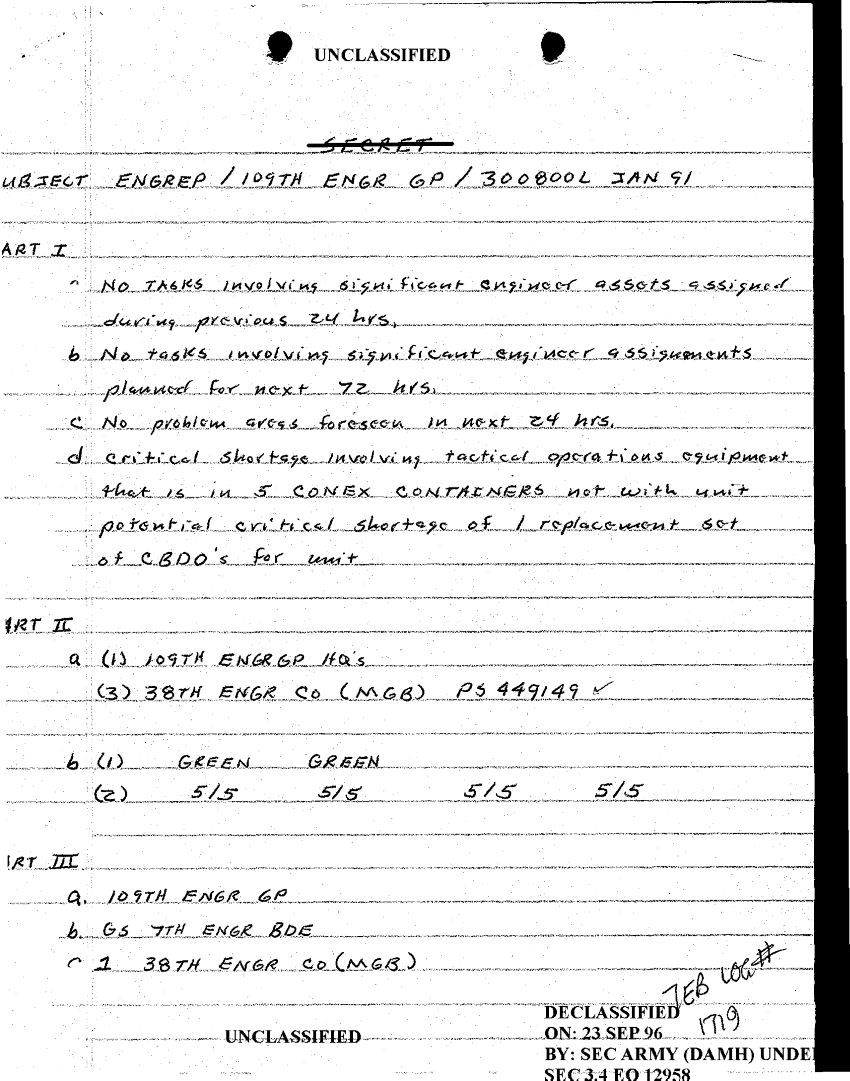 UNCLASSIFIED
SECRET
UBJECT ENGREP / 109TH ENGR GP / 300800L JAN 91
ART I
a No TASKS involving significant engineer assets assigned
during previous 24 hrs.
b No tasks involving significant engineer assignments
planned for next 72 hrs.
c No problem areas foreseen in next 24 hrs.
d critical shortage involving tactical operations equipment
that is in 5 CONEX CONTAINERS not with unit
potential critical shortage of 1 replacement set
of CBDO's for unit
ART II
a (1) 109TH ENGR GP HQ's
(3) 38TH ENGR CO (MGB) PS 449149 ✓
b (1) GREEN GREEN
(2) 5/5 5/5 5/5 5/5
RT III
a. 109TH ENGR GP
b. GS 7TH ENGR BDE
c 1 38TH ENGR CO (MGB)
7EB LOG#
1719
DECLASSIFIED
UNCLASSIFIED
ON: 23 SEP 96
BY: SEC ARMY (DAMH) UNDE
SEC 3.4 EO 12958